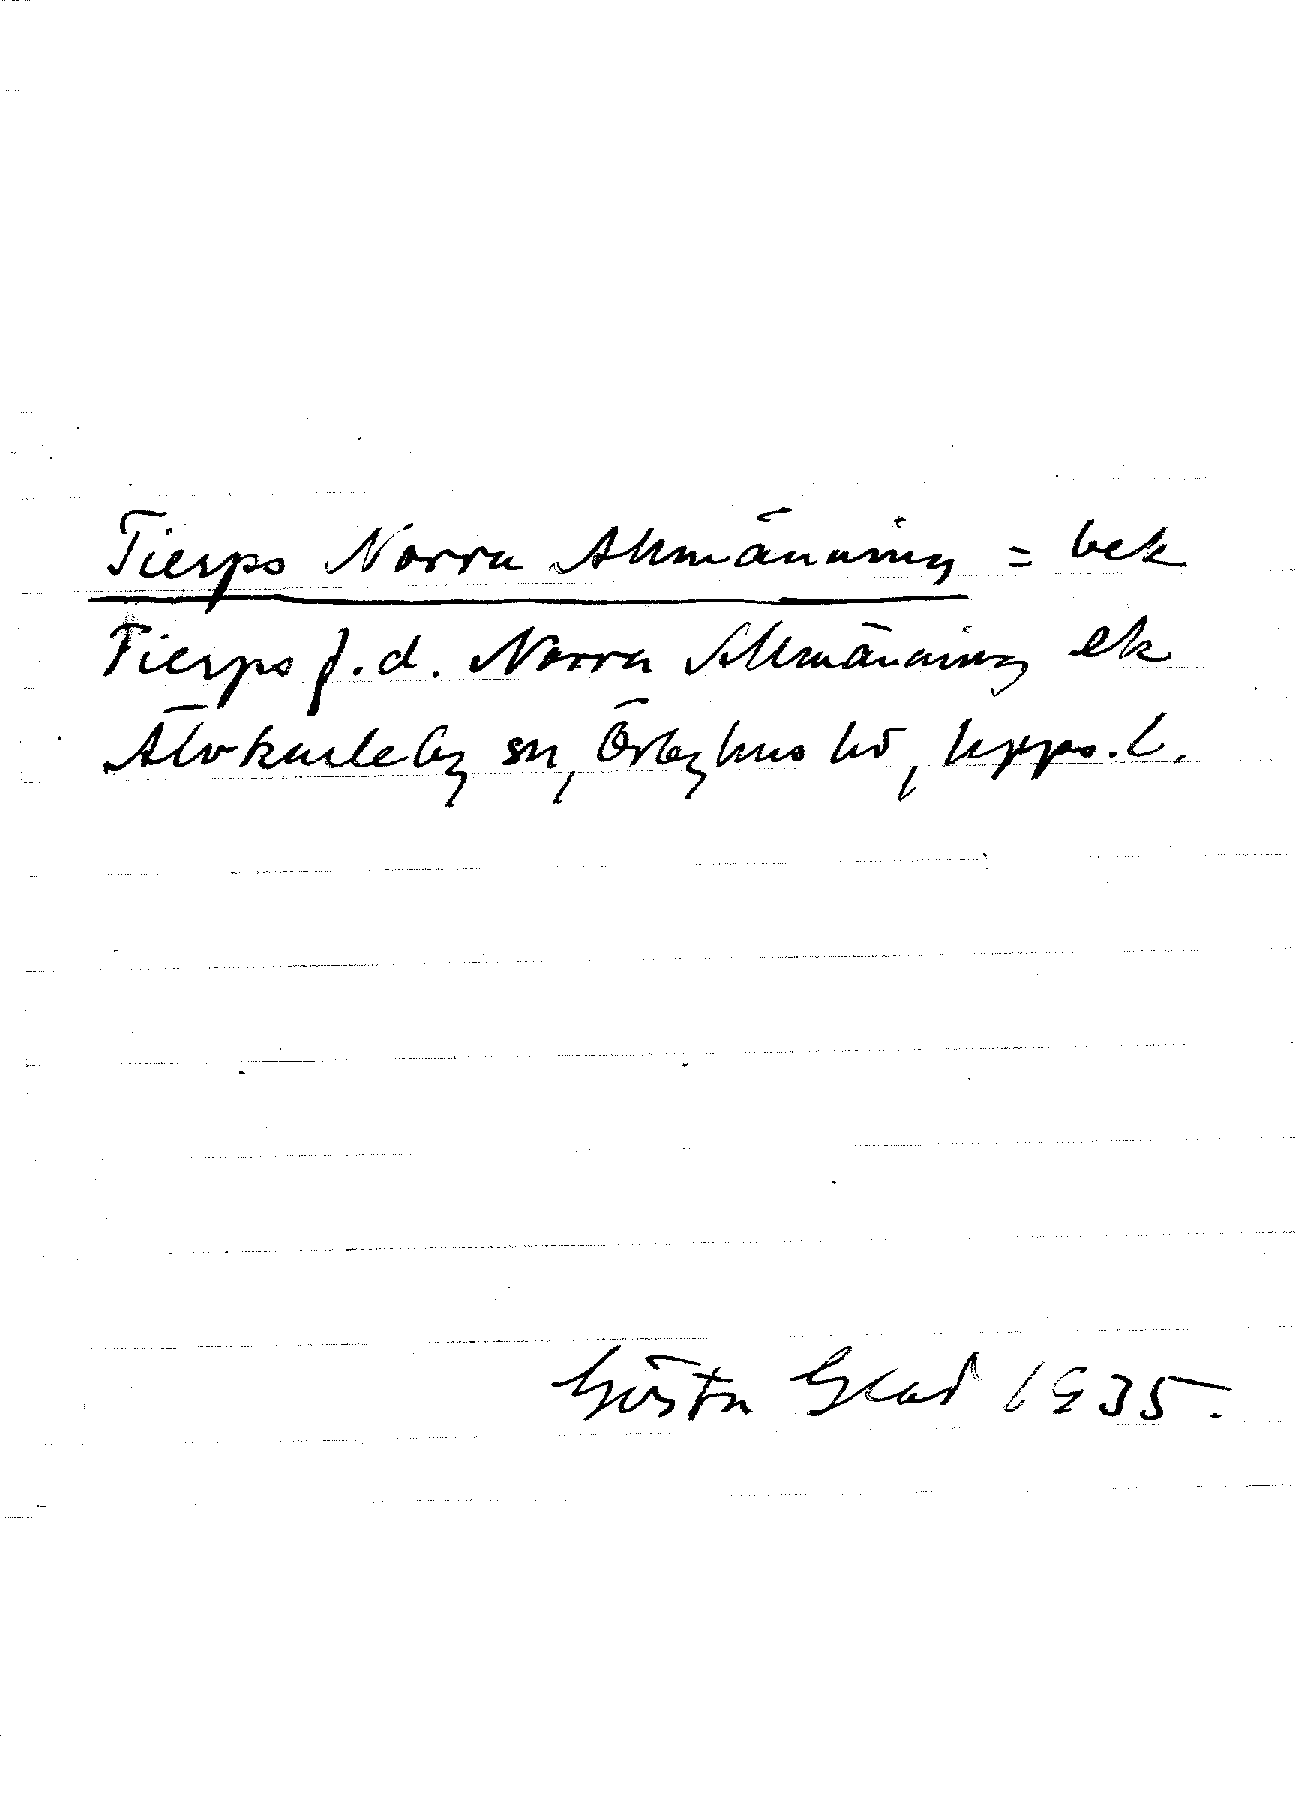 Tierps Norra Allmänning = bek
Tierps f.d. Norra Allmänning ek
Älvkarleby sn, Örbyhus hd, Upps.l.
Gösta Glad 1935.